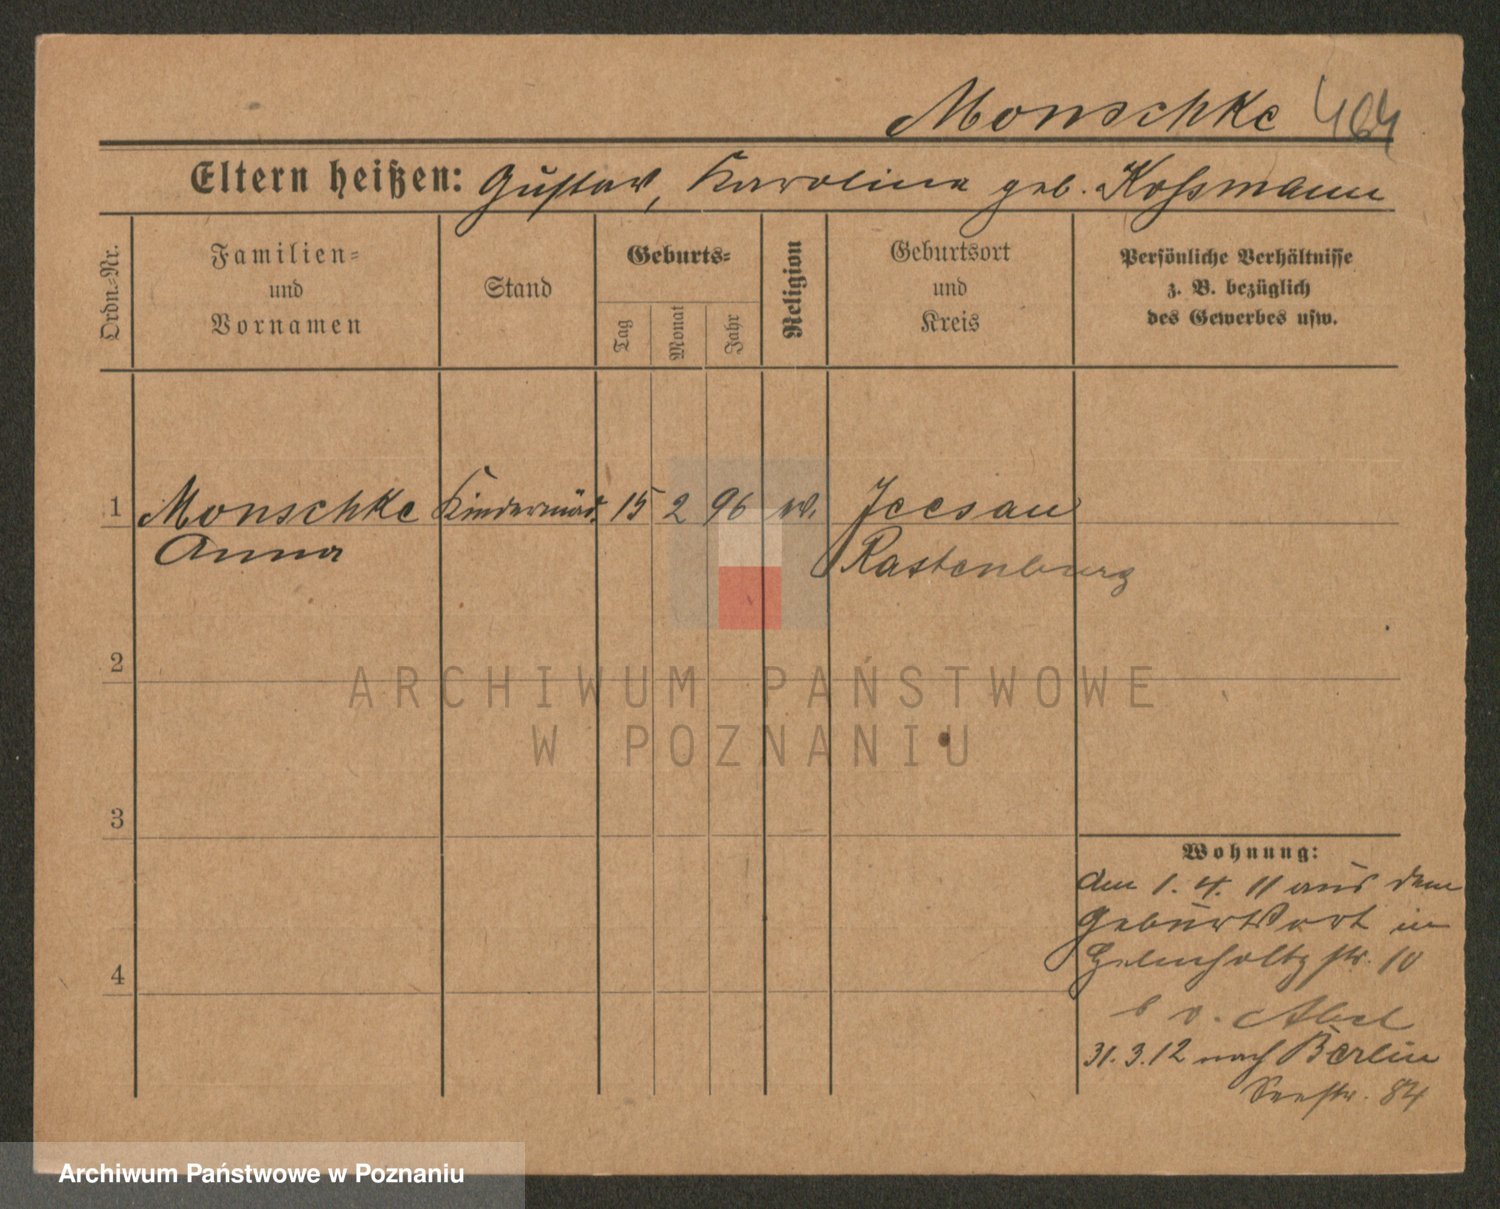 Monschke 464
Eltern heißen: Gustav, Karolina geb. Koßmann
Ordn.-Nr.
Familien-
und
Vornamen
Stand
Geburts-
Tag
Monat
Jahr
Religion
Geburtsort
und
Kreis
Persönliche Verhältnisse
z. B. bezüglich
des Gewerbes usw.
1 Monschke Kindermäd. 15 2 96 w. Jeesau
Anna Rastenburg
2
ARCHIWUM PAŃSTWOWE
W POZNANIU
3
Wohnung:
den 1. 4. 11 aus dem
Geburtsort in
Helmholtzstr. 10
4
b v. Abel
31. 3. 12 nach Berlin
Seestr. 84
Archiwum Państwowe w Poznaniu